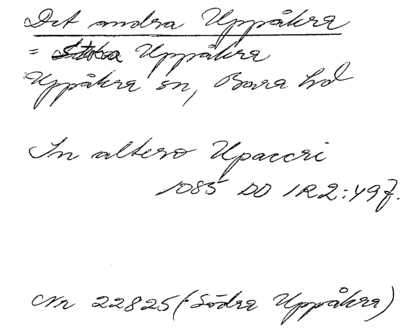 Det andra Uppåkra
= Stora Uppåkra
Uppåkra sn, Bara hd
In altero Upaccri
1085 DD 1R2:49f.
Nr 22825 (Södra Uppåkra)